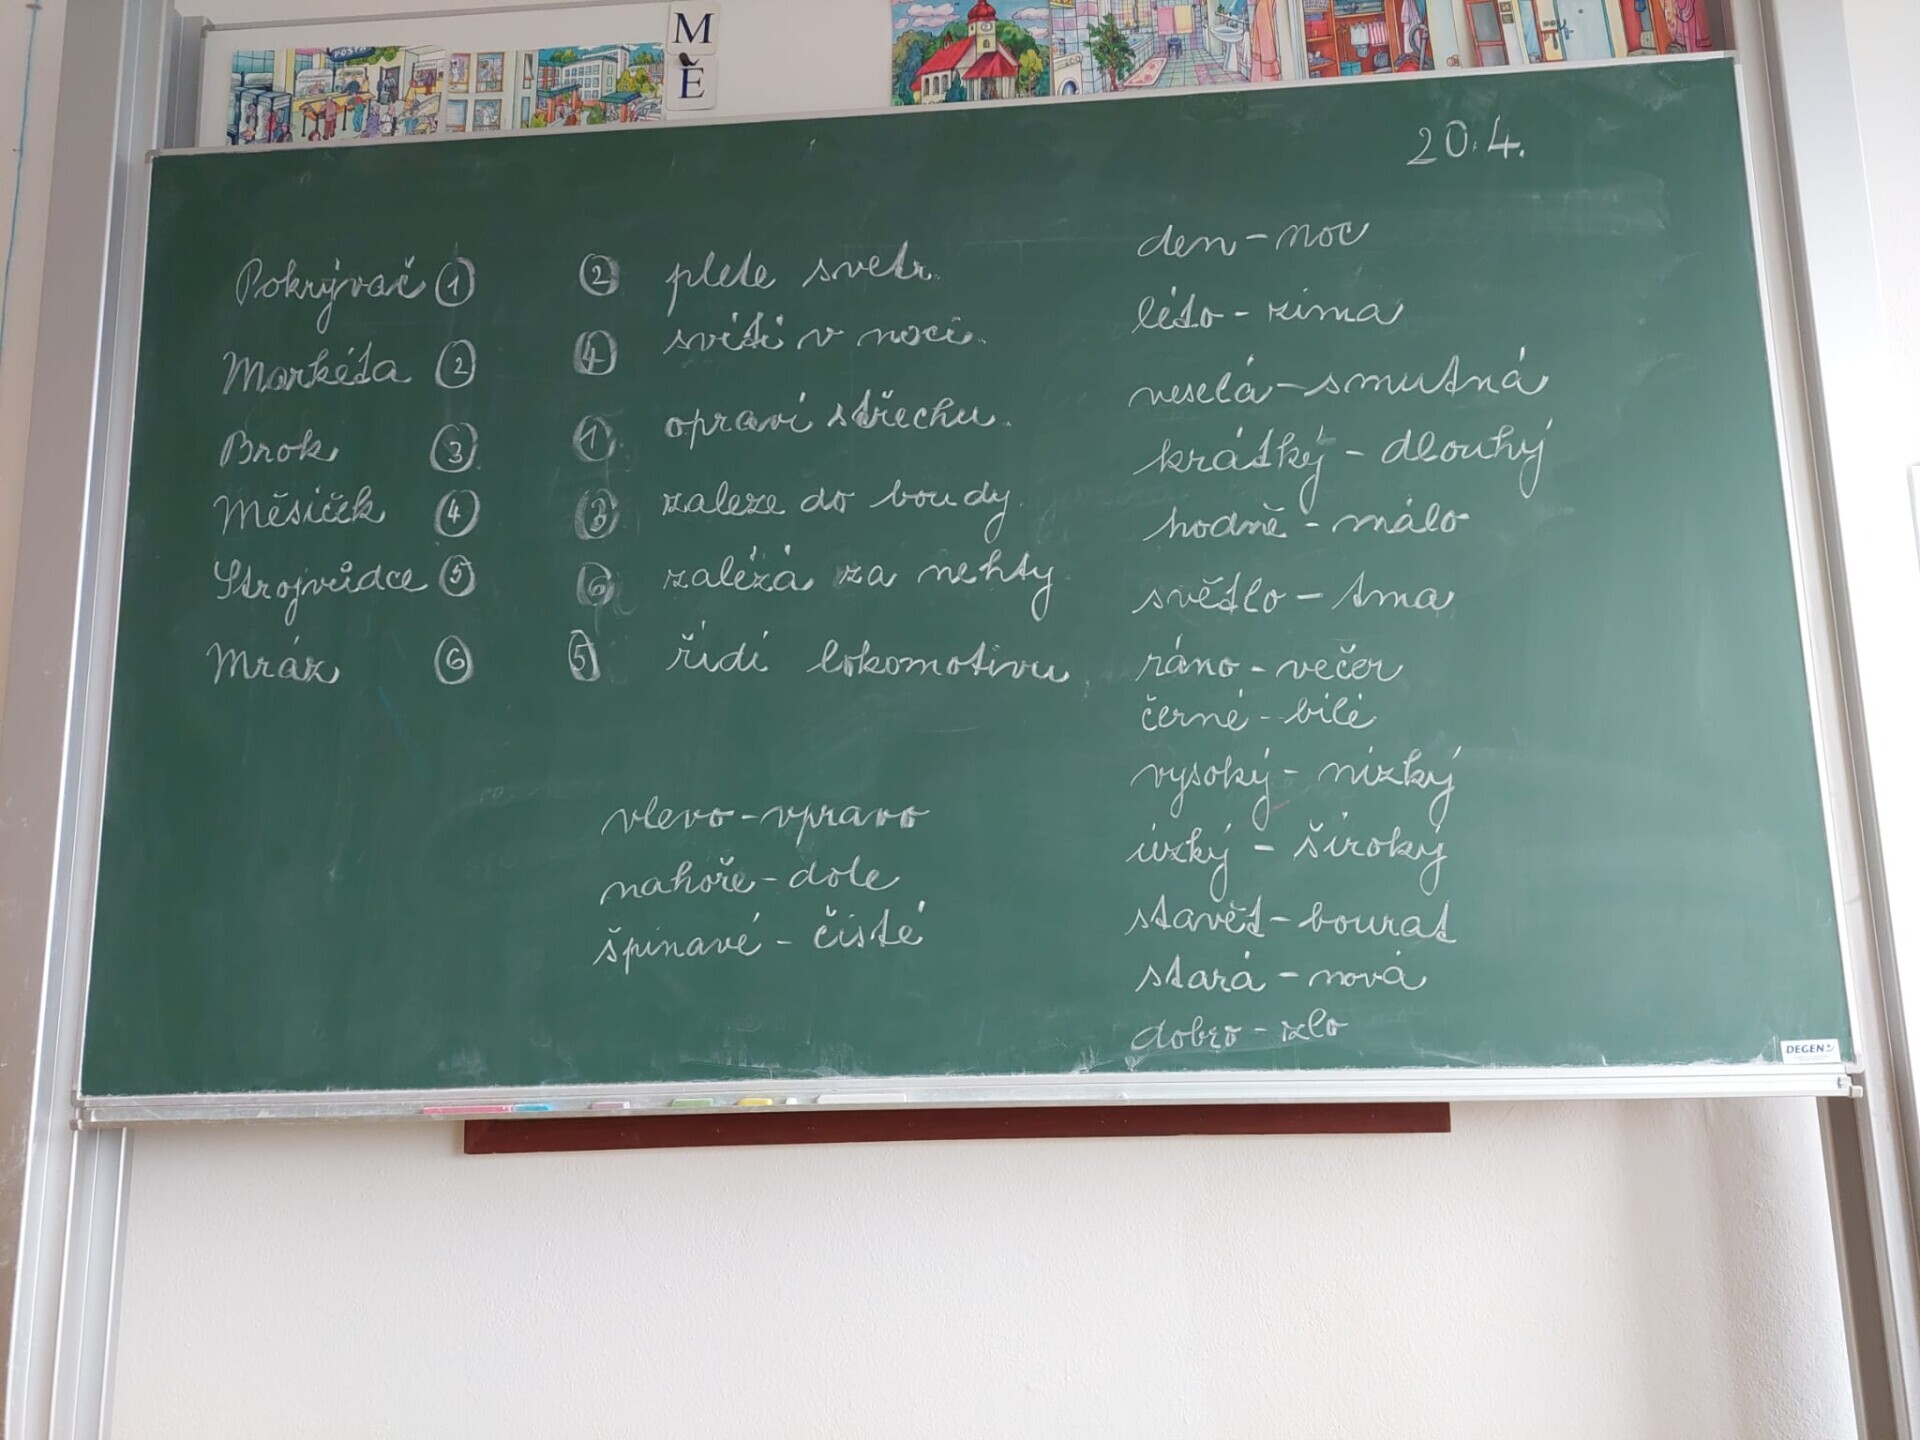 POŠTA
M
Ě
20.4.
Pokrývač ①
Markéta ②
Brok ③
Měsíček ④
Strojvůdce ⑤
Mráz ⑥
② plete svetr.
④ svítí v noci.
① opraví střechu.
③ zaleze do boudy.
⑥ zalézá za nehty
⑤ řídí lokomotivu
den - noc
léto - zima
veselá - smutná
krátký - dlouhý
hodně - málo
světlo - tma
ráno - večer
černé - bílé
vysoký - nízký
úzký - široký
stavět - bourat
stará - nová
dobro - zlo
vlevo - vpravo
nahoře - dole
špinavé - čisté
DEGEN